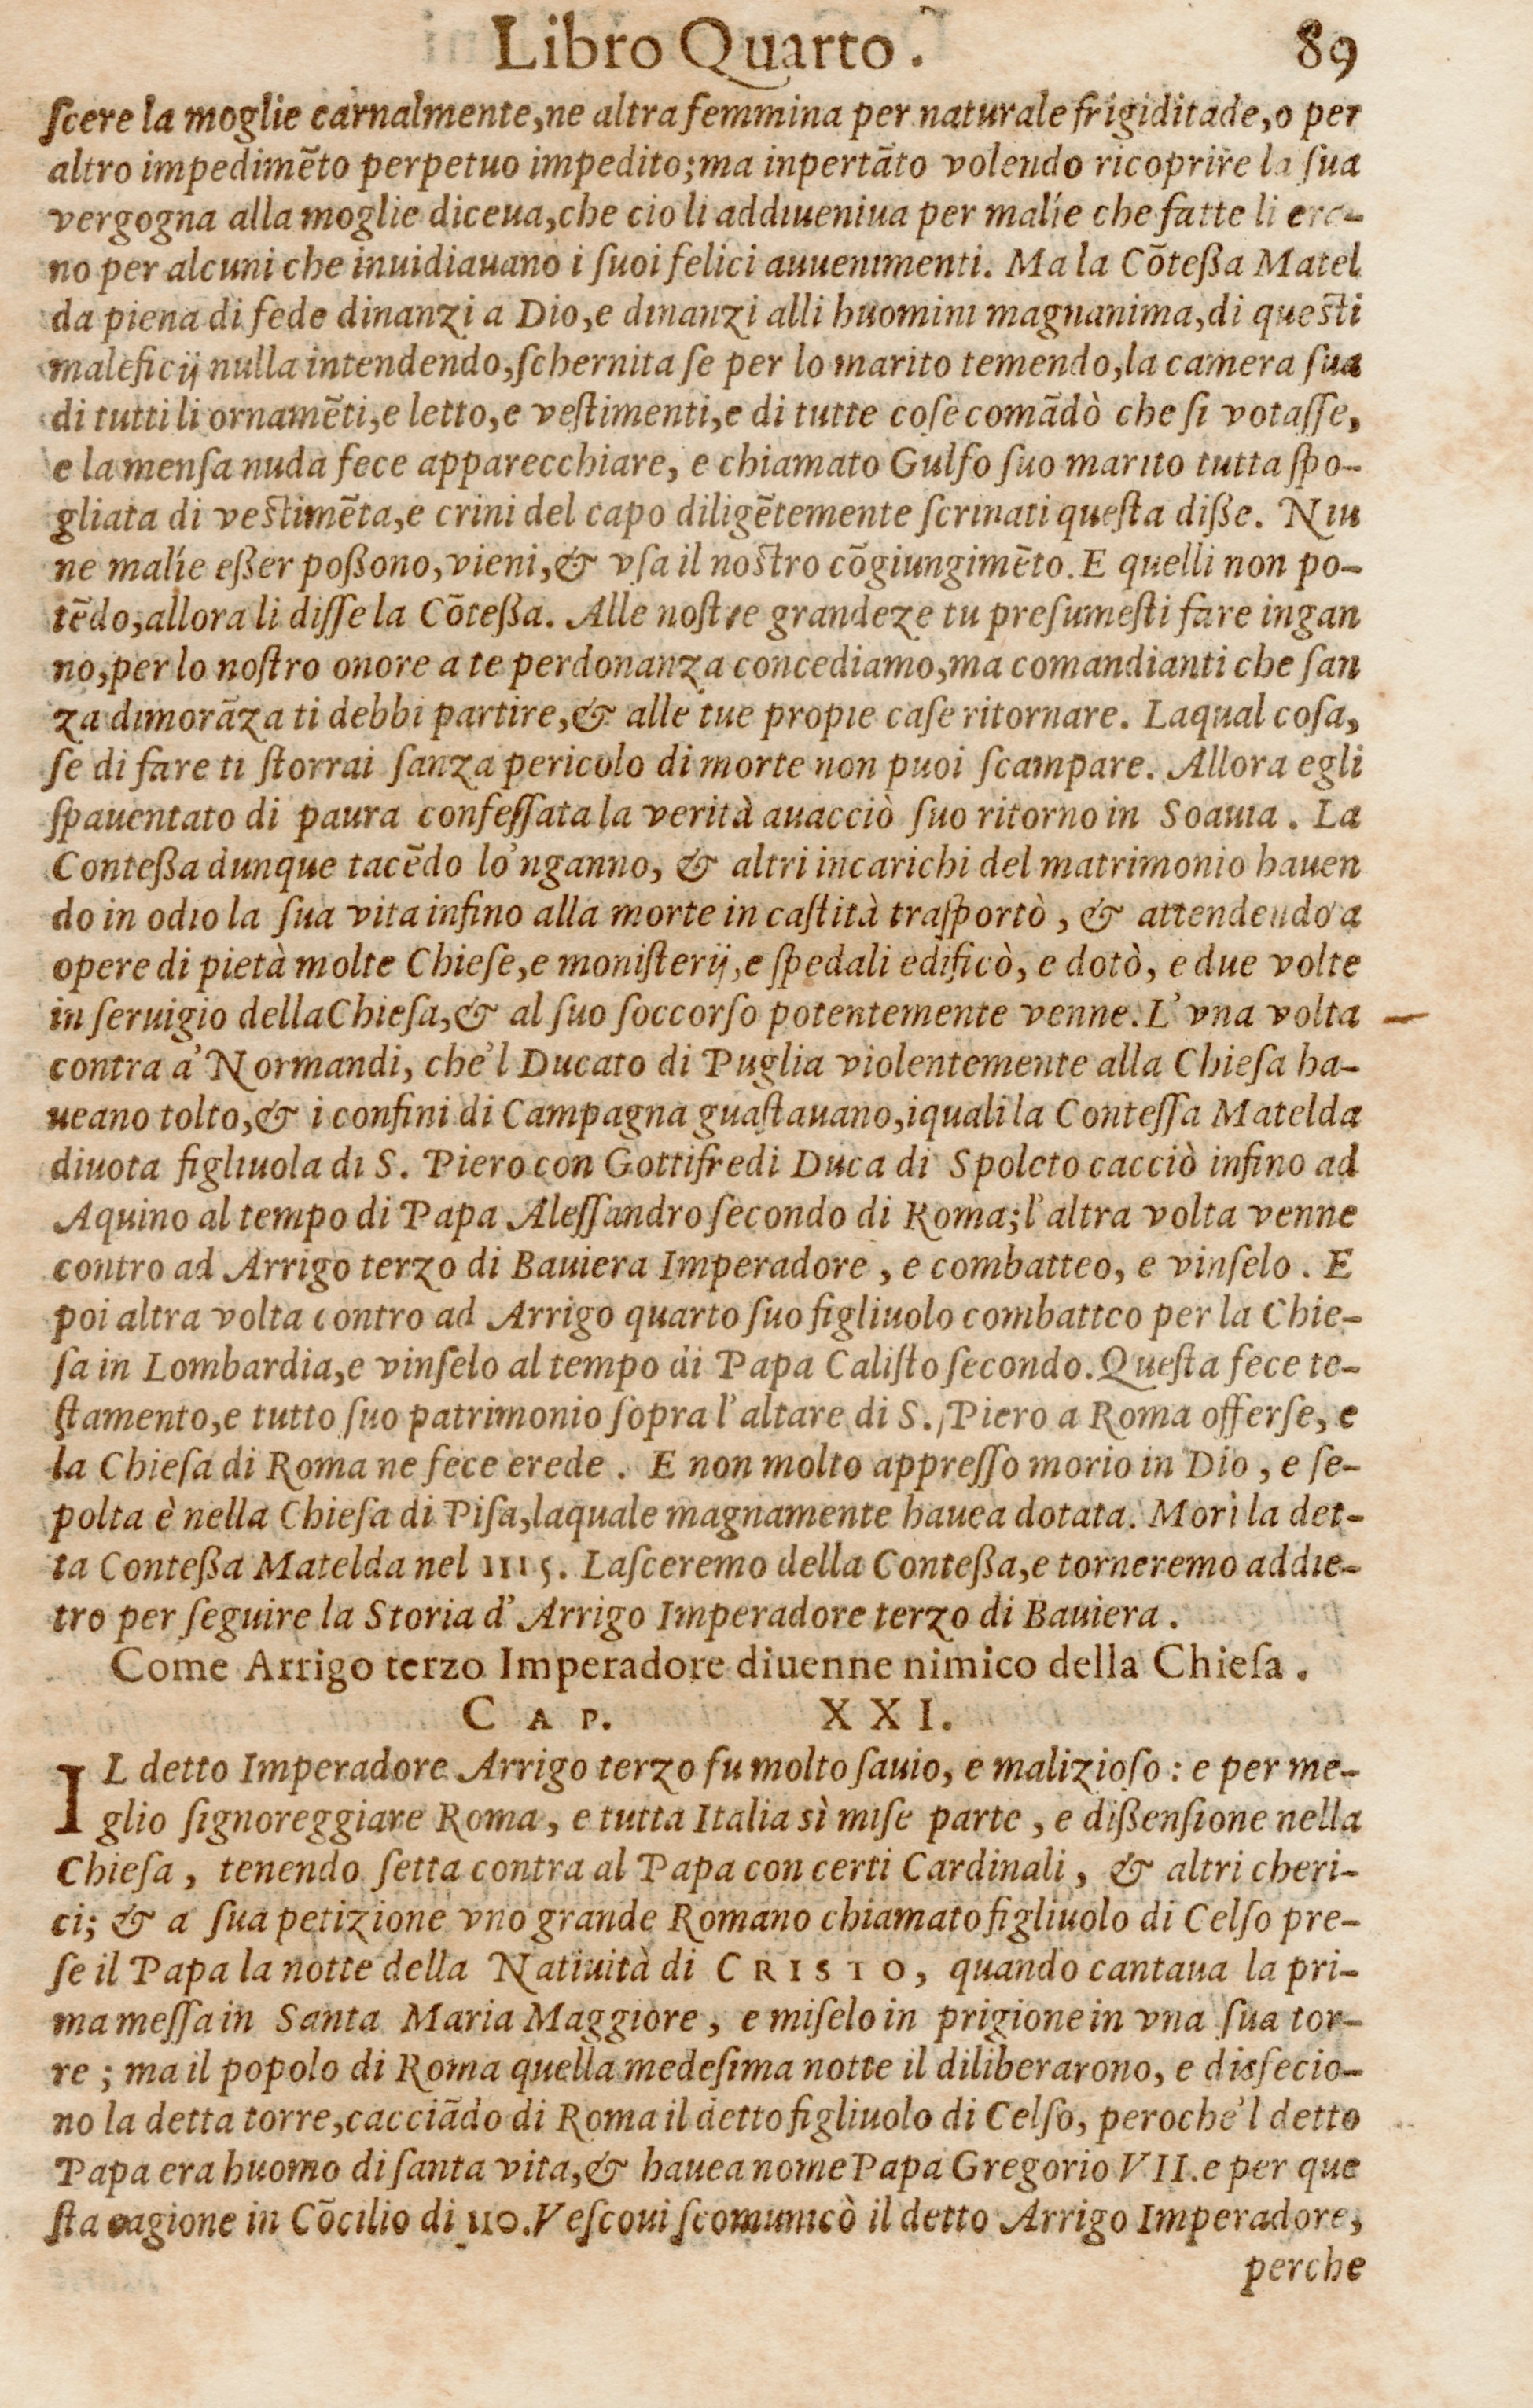 Libro Quarto. 89
ſcere la moglie carnalmente,ne altra femmina per naturale frigiditade,o per
altro impedimẽto perpetuo impedito;ma inpertãto volendo ricoprire la ſua
vergogna alla moglie diceua,che cio li addiueniua per malíe che fatte li era-
no per alcuni che inuidiauano i ſuoi felici auuenimenti. Ma la Cõteßa Matel
da piena di fede dinanzi a Dio,e dinanzi alli huomini magnanima,di queſti
maleficij nulla intendendo,ſchernita ſe per lo marito temendo,la camera ſua
di tutti li ornamẽti,e letto,e veſtimenti,e di tutte coſe comãdò che ſi votaſſe,
e la menſa nuda fece apparecchiare, e chiamato Gulfo ſuo marito tutta ſpo-
gliata di veſtimẽta,e crini del capo diligẽtemente ſcrinati queſta diße. Niu
ne malíe eßer poßono,vieni,& vſa il noſtro cõgiungimẽto. E quelli non po-
tẽdo,allora li diſſe la Cõteßa. Alle noſtre grandeze tu preſumeſti fare ingan
no,per lo noſtro onore a te perdonanza concediamo,ma comandianti che ſan
za dimorãza ti debbi partire,& alle tue propie caſe ritornare. Laqual coſa,
ſe di fare ti ſtorrai ſanza pericolo di morte non puoi ſcampare. Allora egli
ſpauentato di paura confeſſata la verità auacciò ſuo ritorno in Soauia. La
Conteßa dunque tacẽdo lo'nganno, & altri incarichi del matrimonio hauen
do in odio la ſua vita infino alla morte in caſtità traſportò, & attendendo a
opere di pietà molte Chieſe,e moniſterij,e ſpedali edificò, e dotò, e due volte
in ſeruigio della Chieſa,& al ſuo ſoccorſo potentemente venne. L'vna volta
contra a' Normandi, che'l Ducato di Puglia violentemente alla Chieſa ha-
ueano tolto,& i confini di Campagna guaſtauano,iquali la Conteſſa Matelda
diuota figliuola di S. Piero con Gottifredi Duca di Spoleto cacciò infino ad
Aquino al tempo di Papa Aleſſandro ſecondo di Roma;l'altra volta venne
contro ad Arrigo terzo di Bauiera Imperadore, e combatteo, e vinſelo. E
poi altra volta contro ad Arrigo quarto ſuo figliuolo combatteo per la Chie-
ſa in Lombardia,e vinſelo al tempo di Papa Caliſto ſecondo. Queſta fece te-
ſtamento,e tutto ſuo patrimonio ſopra l'altare di S. Piero a Roma offerſe, e
la Chieſa di Roma ne fece erede. E non molto appreſſo morio in Dio, e ſe-
polta è nella Chieſa di Piſa,laquale magnamente hauea dotata. Morì la det-
ta Conteßa Matelda nel 1115. Laſceremo della Conteßa,e torneremo addie-
tro per ſeguire la Storia d'Arrigo Imperadore terzo di Bauiera.
Come Arrigo terzo Imperadore diuenne nimico della Chieſa.
CAP. XXI.
IL detto Imperadore Arrigo terzo fu molto ſauio, e malizioſo: e per me-
glio ſignoreggiare Roma, e tutta Italia sì miſe parte, e dißenſione nella
Chieſa, tenendo ſetta contra al Papa con certi Cardinali, & altri cheri-
ci; & a ſua petizione vno grande Romano chiamato figliuolo di Celſo pre-
ſe il Papa la notte della Natiuità di CRISTO, quando cantaua la pri-
ma meſſa in Santa Maria Maggiore, e miſelo in prigione in vna ſua tor-
re; ma il popolo di Roma quella medeſima notte il diliberarono, e disfecio-
no la detta torre,cacciãdo di Roma il detto figliuolo di Celſo, peroche'l detto
Papa era huomo di ſanta vita,& hauea nome Papa Gregorio VII. e per que
ſta cagione in Cõcilio di 110. Veſcoui ſcomunicò il detto Arrigo Imperadore,
perche